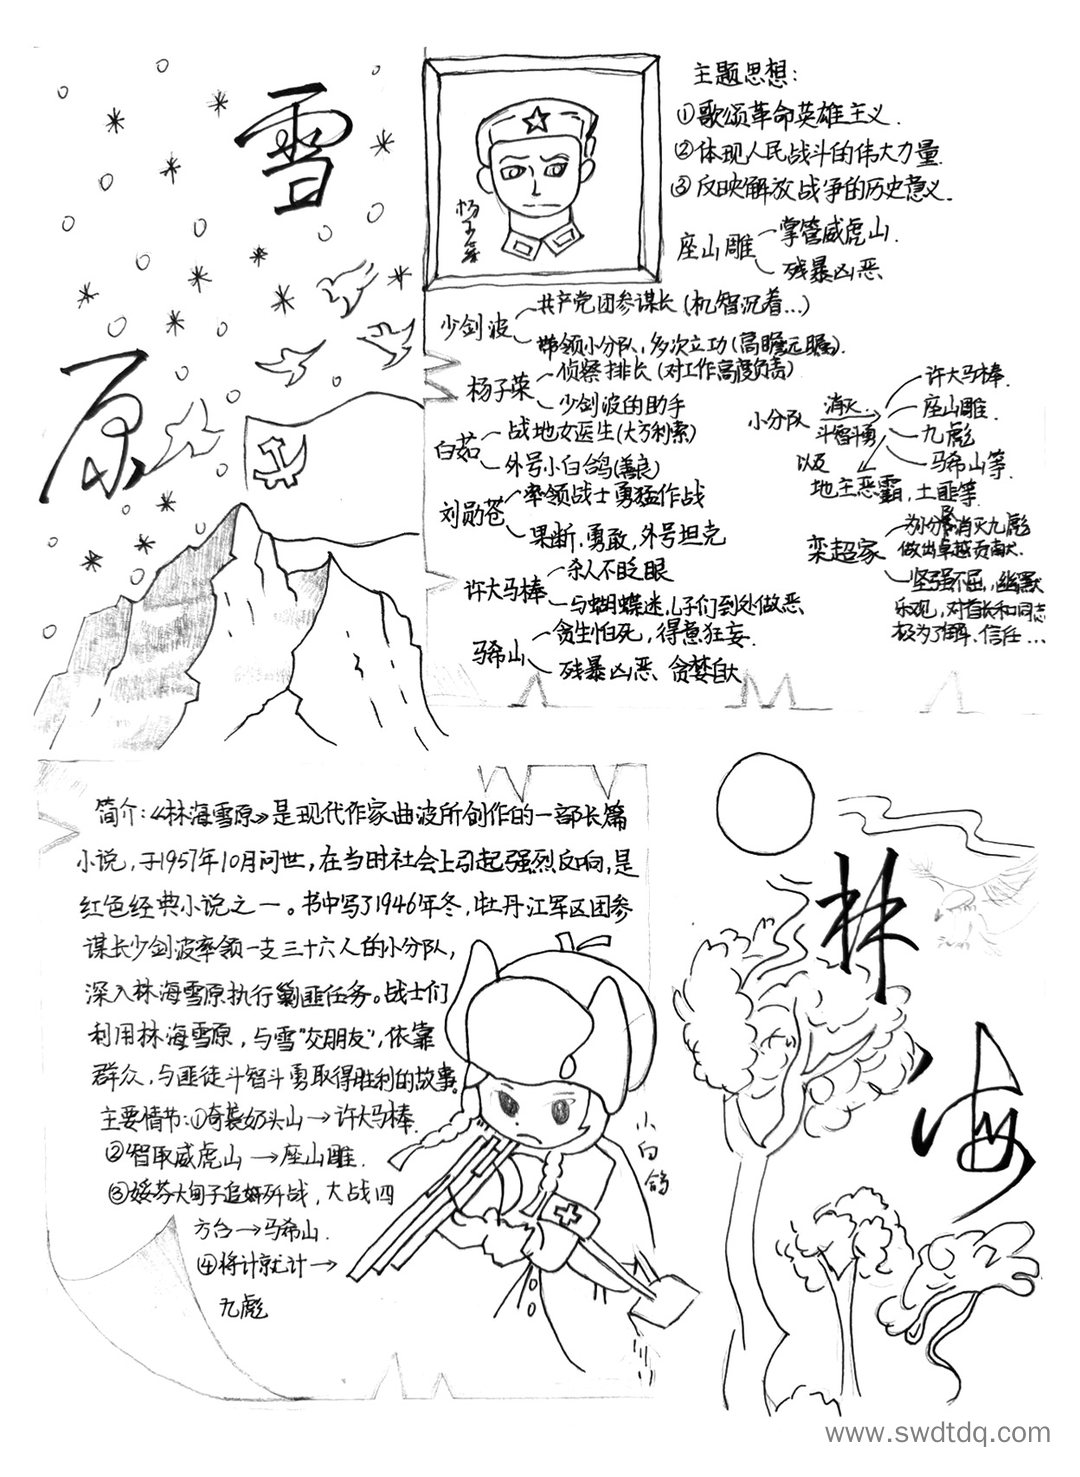 雪
原
杨子荣
主题思想：
①歌颂革命英雄主义.
②体现人民战斗的伟大力量.
③反映解放战争的历史意义.
座山雕
掌管威虎山.
残暴凶恶
少剑波
共产党团参谋长(机智沉着…)
带领小分队，多次立功(高瞻远瞩).
杨子荣
侦察排长(对工作高度负责)
少剑波的助手
白茹
战地女医生(大方利索)
外号小白鸽(善良)
刘勋苍
率领战士勇猛作战
果断,勇敢,外号坦克
许大马棒
杀人不眨眼
与蝴蝶迷,儿子们到处做恶
马希山
贪生怕死，得意狂妄.
残暴凶恶、贪婪自大
小分队
消灭
斗智斗勇
许大马棒.
座山雕.
九彪
马希山等.
以及
地主恶霸,土匪等.
栾超家
为小分队消灭九彪
做出卓越贡献.
坚强不屈,幽默
乐观,对首长和同志
极为了解、信任…
简介：《林海雪原》是现代作家曲波所创作的一部长篇
小说，于1957年10月问世，在当时社会上引起强烈反响,是
红色经典小说之一。书中写了1946年冬,牡丹江军区团参
谋长少剑波率领一支三十六人的小分队,
深入林海雪原执行剿匪任务。战士们
利用林海雪原，与雪"交朋友"，依靠
群众，与匪徒斗智斗勇取得胜利的故事。
主要情节：①奇袭奶头山→许大马棒.
②智取威虎山→座山雕.
③绥芬大甸子追奸歼战，大战四
方台→马希山.
④将计就计→
九彪
小白鸽
林
海
www.swdtdq.com